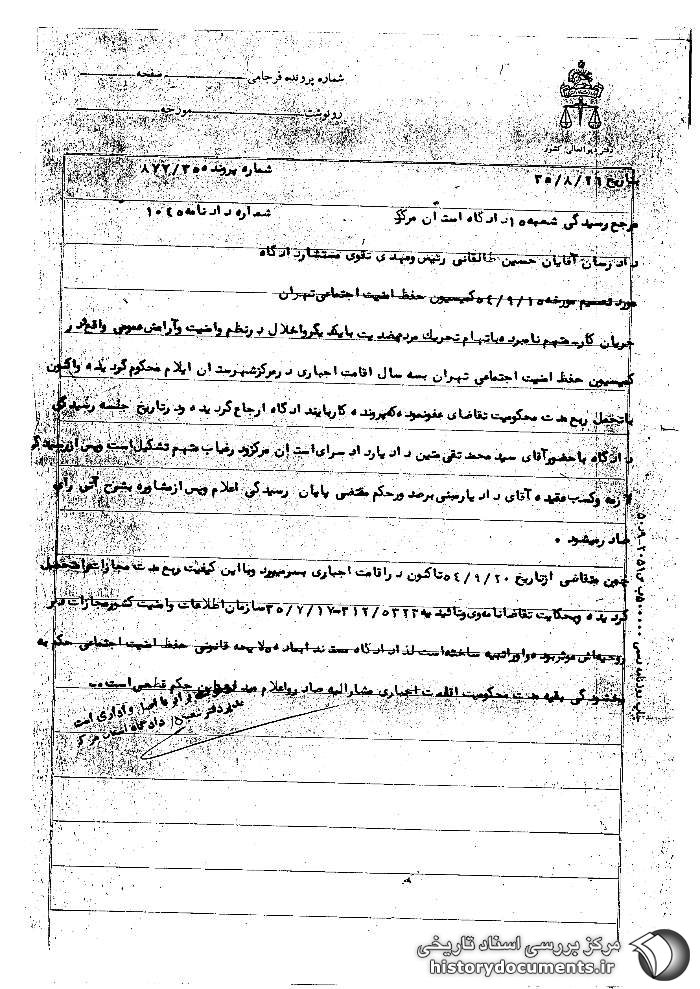 شماره پرونده فرجامی صفحه
رونوشت مورخه
بتاریخ ۳۵/۸/۲۹ شماره پرونده ۸۷۳/۳۵
مرجع رسیدگی شعبه ۱۵ دادگاه استان مرکز شماره دادنامه ۱۰۴۵
دادرسان آقایان حسین طالقانی رئیس ومهدی تقوی مستشار دادگاه
مورد تصمیم مورخه ۵۴/۹/۱۵ کمیسیون حفظ امنیت اجتماعی تهران
جریان کار متهم نامبرده باتهام تحریک مردم بضدیت بایکدیگر واخلال در نظم وامنیت وآرامش عمومی واقع در
کمیسیون حفظ امنیت اجتماعی تهران بسه سال اقامت اجباری در مرکز شهرستان ایلام محکوم گردیده واکنون
با تحمل ربع مدت محکومیت تقاضای عفو نموده که پرونده کار باین دادگاه ارجاع گردیده ودر تاریخ جلسه رسیدگی
دادگاه با حضور آقای سید محمد تقی متین دادیار دادسرای استان مرکز ودر غیاب متهم تشکیل است وپس از رسیدگی
لازمه وکسب عقیده آقای دادیار مبنی بر صدور حکم مقتضی پایان رسیدگی اعلام وپس از مشاوره بشرح آتی رای
صادر میشود .
چون متقاضی از تاریخ ۵۴/۹/۲۰ تاکنون در اقامت اجباری بسر میبرد وبا این کیفیت ربع مدت مجازات را متحمل
گردیده وبحکایت تقاضانامه وی وتائیدیه ۳۱۲/۵۳۲۲-۳۵/۷/۱۷ سازمان اطلاعات وامنیت کشور مجازات در
روحیه‌اش موثر بوده واو را تنبیه ساخته است لذا دادگاه مستند بماده لایحه قانونی حفظ امنیت اجتماعی حکم به
بخشودگی بقیه مدت محکومیت اقامت اجباری مشارالیه صادر واعلام میدارد این حکم قطعی است.
مدیر دفتر شعبه ۱۵ دادگاه استان مرکز
مرکز بررسی اسناد تاریخی
historydocuments.ir